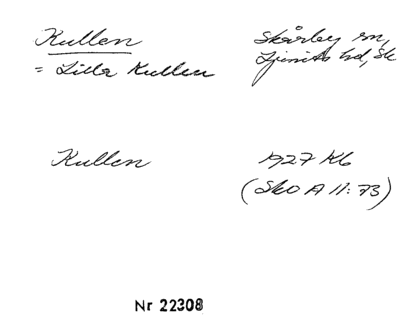 Kullen
= Lilla Kullen
Skårby sn,
Ljunits hd, Sk
Kullen
1927 Kb
(SkO A 11: 73)
Nr 22308